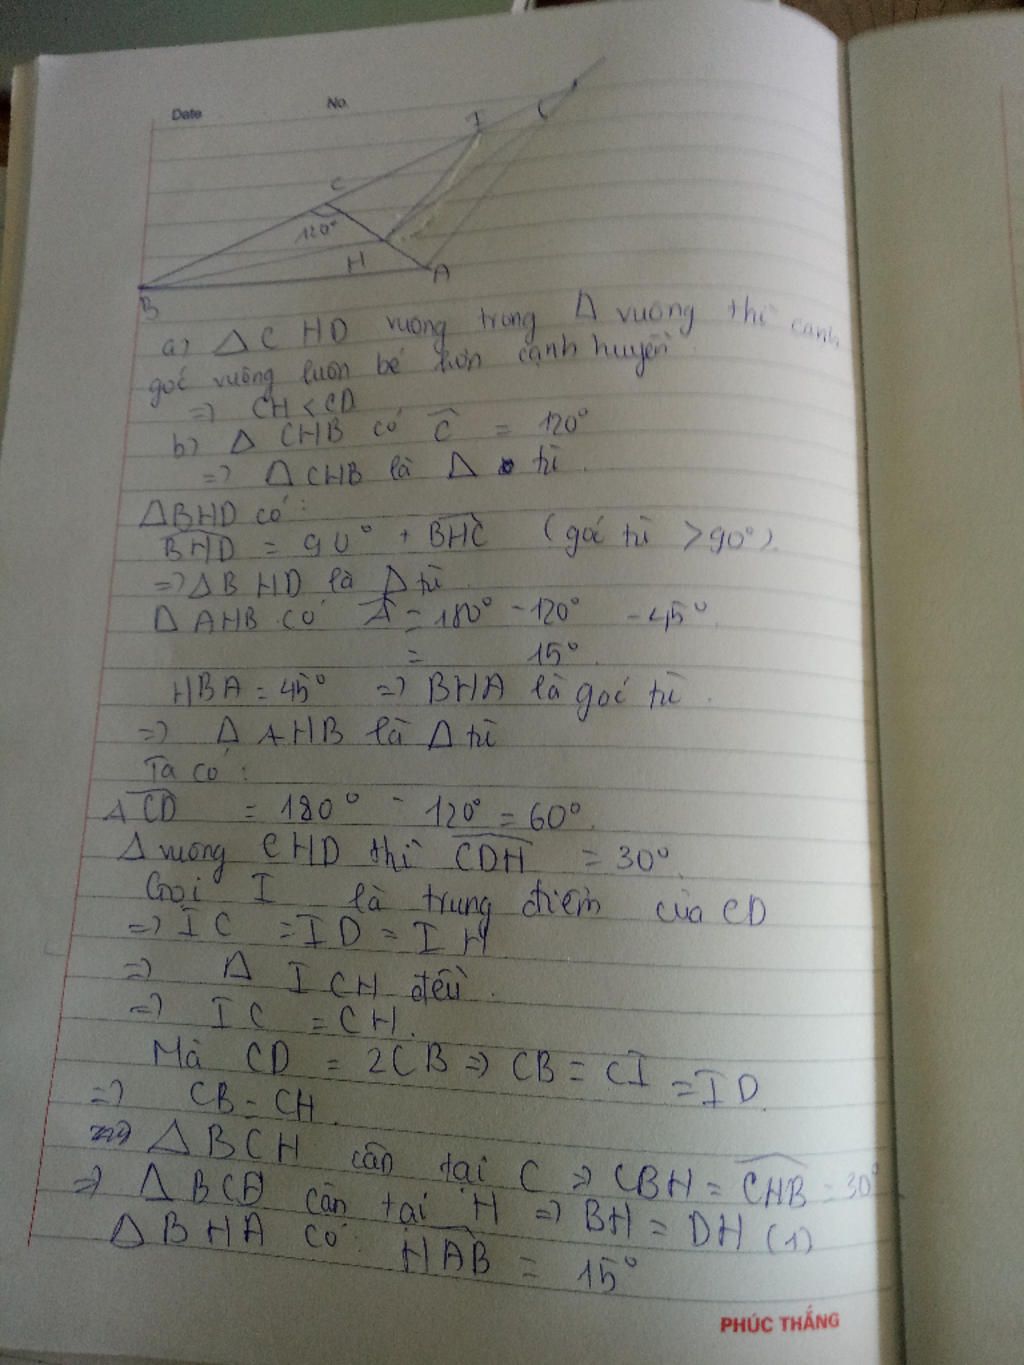 Date No.
I
C
120°
H
A
B
a) Δ C HD vuông trong Δ vuông thì cạnh
góc vuông luôn bé hơn cạnh huyền
=> CH < CD
b) Δ CHB có Ĉ = 120°
=> Δ CHB là Δ tù.
ΔBHD có:
BHD = 90° + BHC (góc tù > 90°).
=> ΔB HD là Δ tù.
Δ AHB có A = 180° - 120° - 45°
= 15°.
HBA = 45° => BHA là góc tù.
=> Δ AHB là Δ tù
Ta có:
ACD = 180° - 120° = 60°.
Δ vuông CHD thì CDH = 30°.
Gọi I là trung điểm của CD
=> IC = ID = IH
=> Δ ICH đều.
=> IC = CH.
Mà CD = 2CB => CB = CI = ID.
=> CB = CH.
Δ BCH cân tại C => CBH = CHB = 30°
=> Δ BCD cân tại H => BH = DH (1)
Δ BHA có: HAB = 15°
PHÚC THẮNG